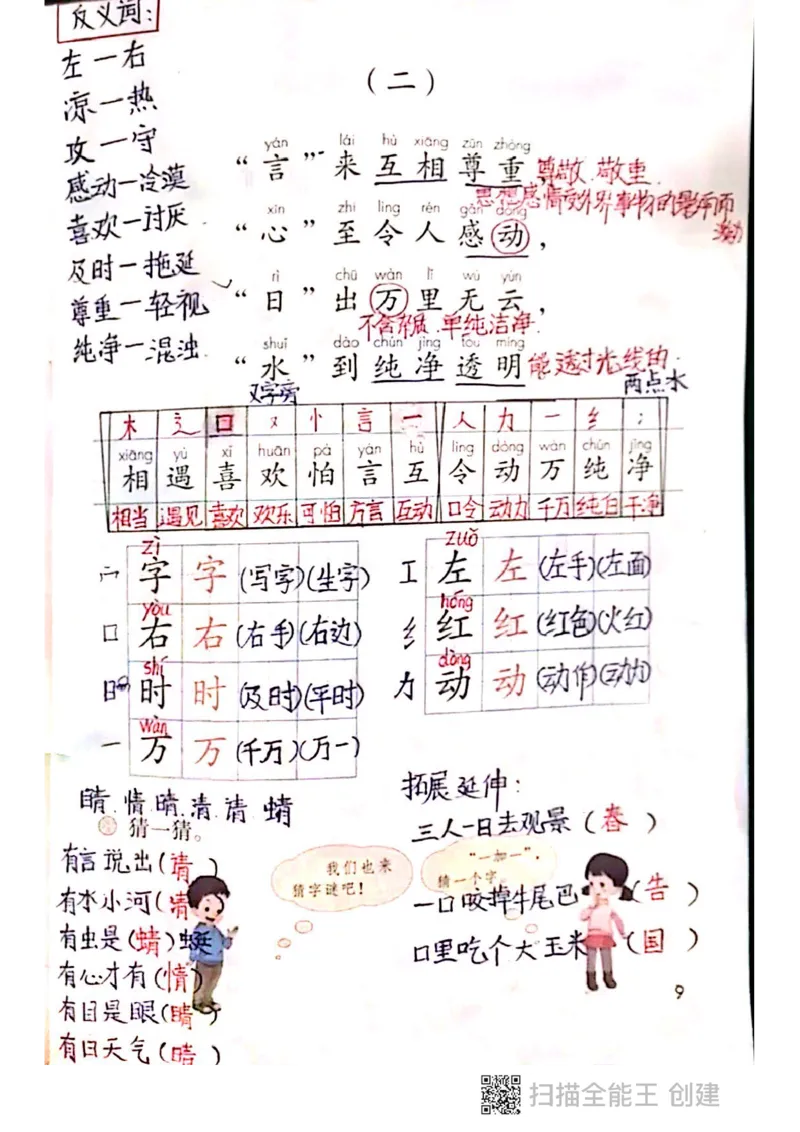 反义词：
左—右
凉—热
攻—守
感动—冷漠
喜欢—讨厌
及时—拖延
尊重—轻视
纯净—混浊
（二）
yán lái hù xiāng zūn zhòng
“言”来互相尊重 尊敬、敬重.
思想感情受外界事物的影响而
激动
xīn zhì lìng rén gǎn dòng
“心”至令人感动，
rì chū wàn lǐ wú yún
“日”出万里无云，
不含杂质.单纯洁净.
shuǐ dào chún jìng tòu míng
“水”到纯净透明 能透过光线的.
又字旁 两点水
木 辶 口 又 忄 言 一 人 力 一 纟 冫
xiāng yù xǐ huān pà yán hù lìng dòng wàn chún jìng
相 遇 喜 欢 怕 言 互 令 动 万 纯 净
相当 遇见 喜欢 欢乐 可怕 方言 互动 口令 动力 千万 纯白 干净
zì
宀 字 字 (写字)(生字)
yòu
口 右 右 (右手)(右边)
shí
日 时 时 (及时)(平时)
wàn
一 万 万 (千万)(万一)
zuǒ
工 左 左 (左手)(左面)
hóng
纟 红 红 (红色)(火红)
dòng
力 动 动 (动作)(动力)
睛.情.晴.清.请.蜻
猜一猜。
有言说出(请)
有水小河(清)
有虫是(蜻)蜓
有心才有(情)
有目是眼(睛)
有日天气(晴)
我们也来
猜字谜吧！
“一加一”，
猜一个字。
拓展延伸：
三人一日去观景（春）
一口咬掉牛尾巴（告）
口里吃个大玉米（国）
9
扫描全能王 创建